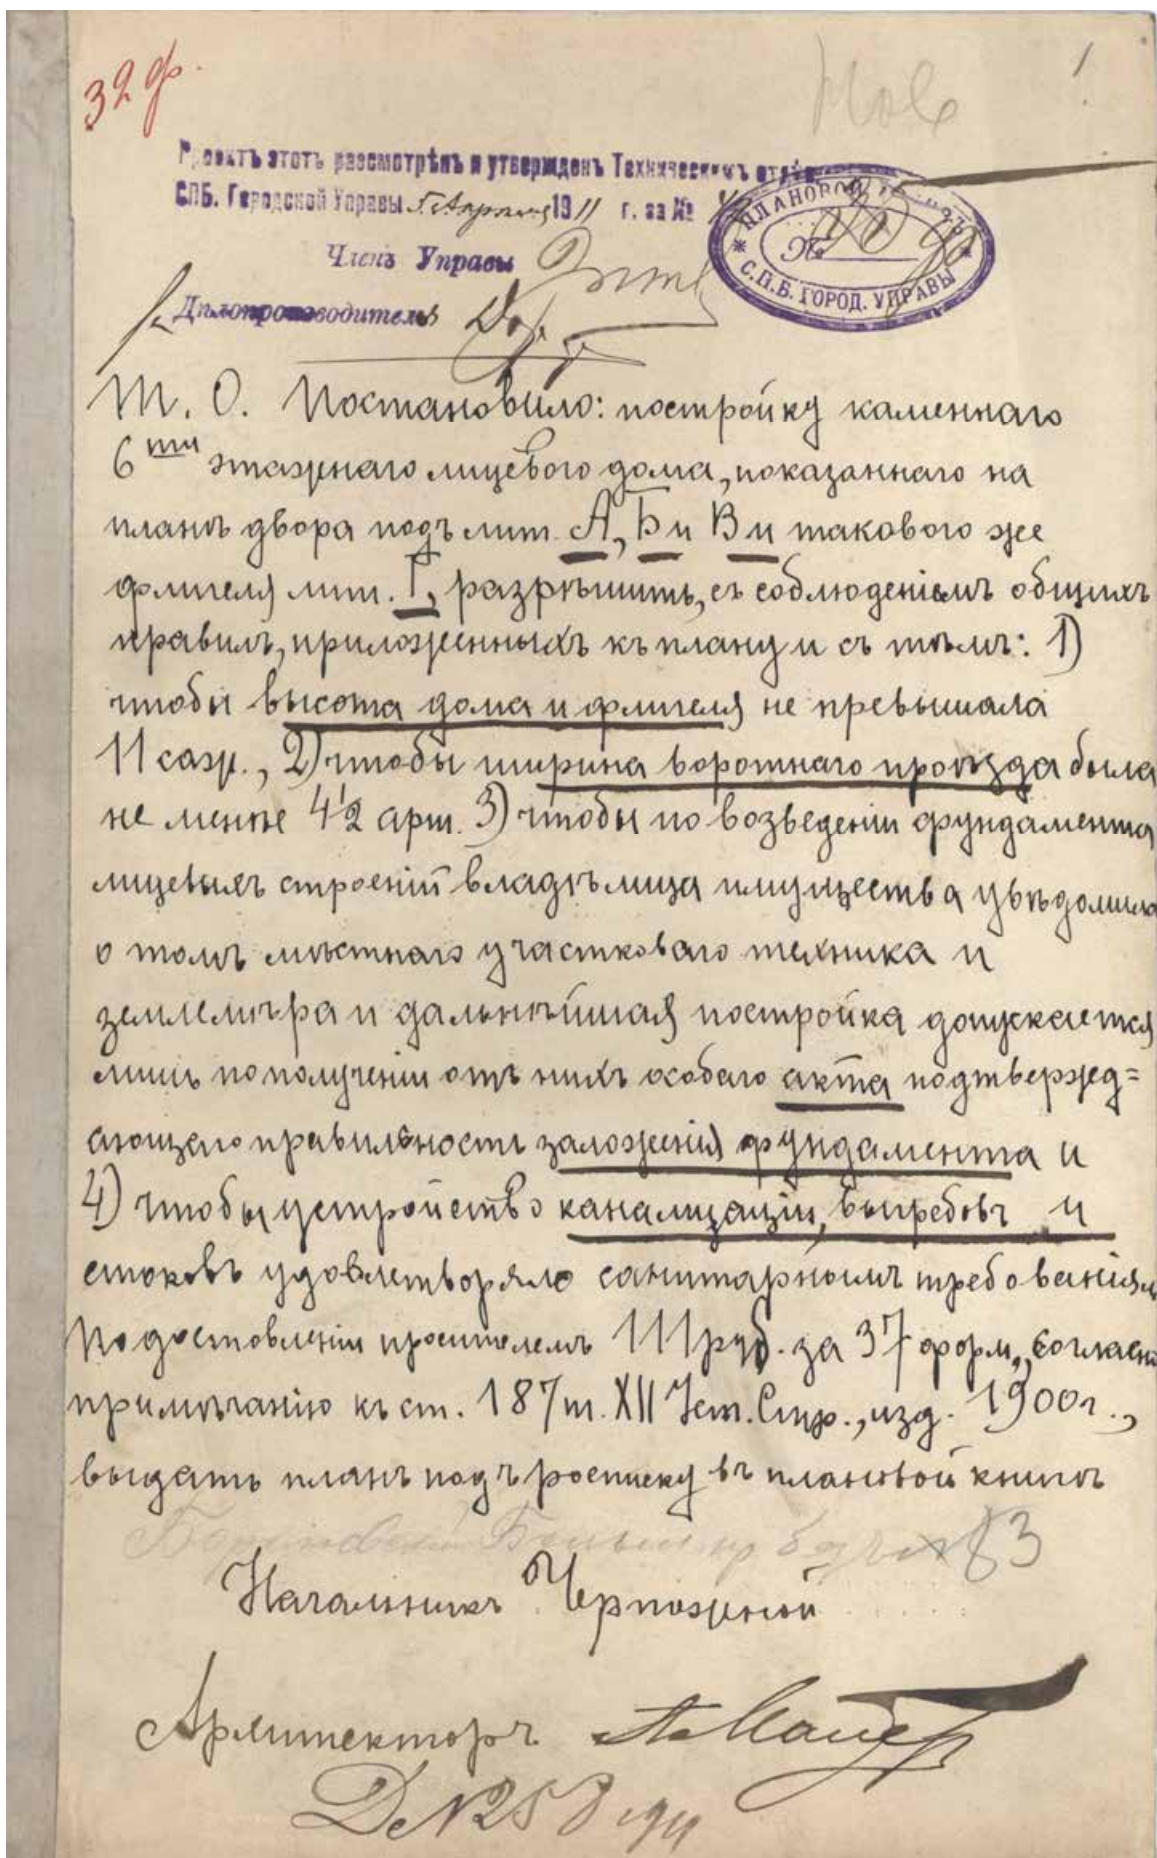 32 ф.
1
Проектъ этотъ разсмотрѣнъ и утвержденъ Техническимъ отдѣ
СПБ. Городской Управы 5 Апрѣля 1911 г. за №
ПЛАНОВОЙ
№
С.П.Б. ГОРОД. УПРАВЫ
Членъ Управы
Дѣлопроизводитель
Т. О. Постановило: постройку каменнаго
6ти этажнаго лицевого дома, показаннаго на
планѣ двора подъ лит. А, Б и В и такового же
флигеля лит. Г, разрѣшить, съ соблюденіемъ общихъ
правилъ, приложенныхъ къ плану и съ тѣмъ: 1)
чтобы высота дома и флигеля не превышала
11 саж., 2) чтобы ширина воротнаго проѣзда была
не менѣе 4 1/2 арш. 3) чтобы по возведеніи фундамента
лицевыхъ строеній владѣлица имущества увѣдомила
о томъ мѣстнаго участковаго техника и
землемѣра и дальнѣйшая постройка допускается
лишь по полученіи отъ нихъ особаго акта подтвержд=
ающаго правильность заложенія фундамента и
4) чтобы устройство канализаціи, выгребовъ и
стоковъ удовлетворяло санитарнымъ требованіям
По доставленіи просителемъ 111 руб. за 37 форм., согласн
примѣчанію къ ст. 187 т. XII Уст. Стр., изд. 1900 г.,
выдать планъ подъ росписку въ плановой книгѣ
83
Начальникъ Чертежной
Архитекторъ